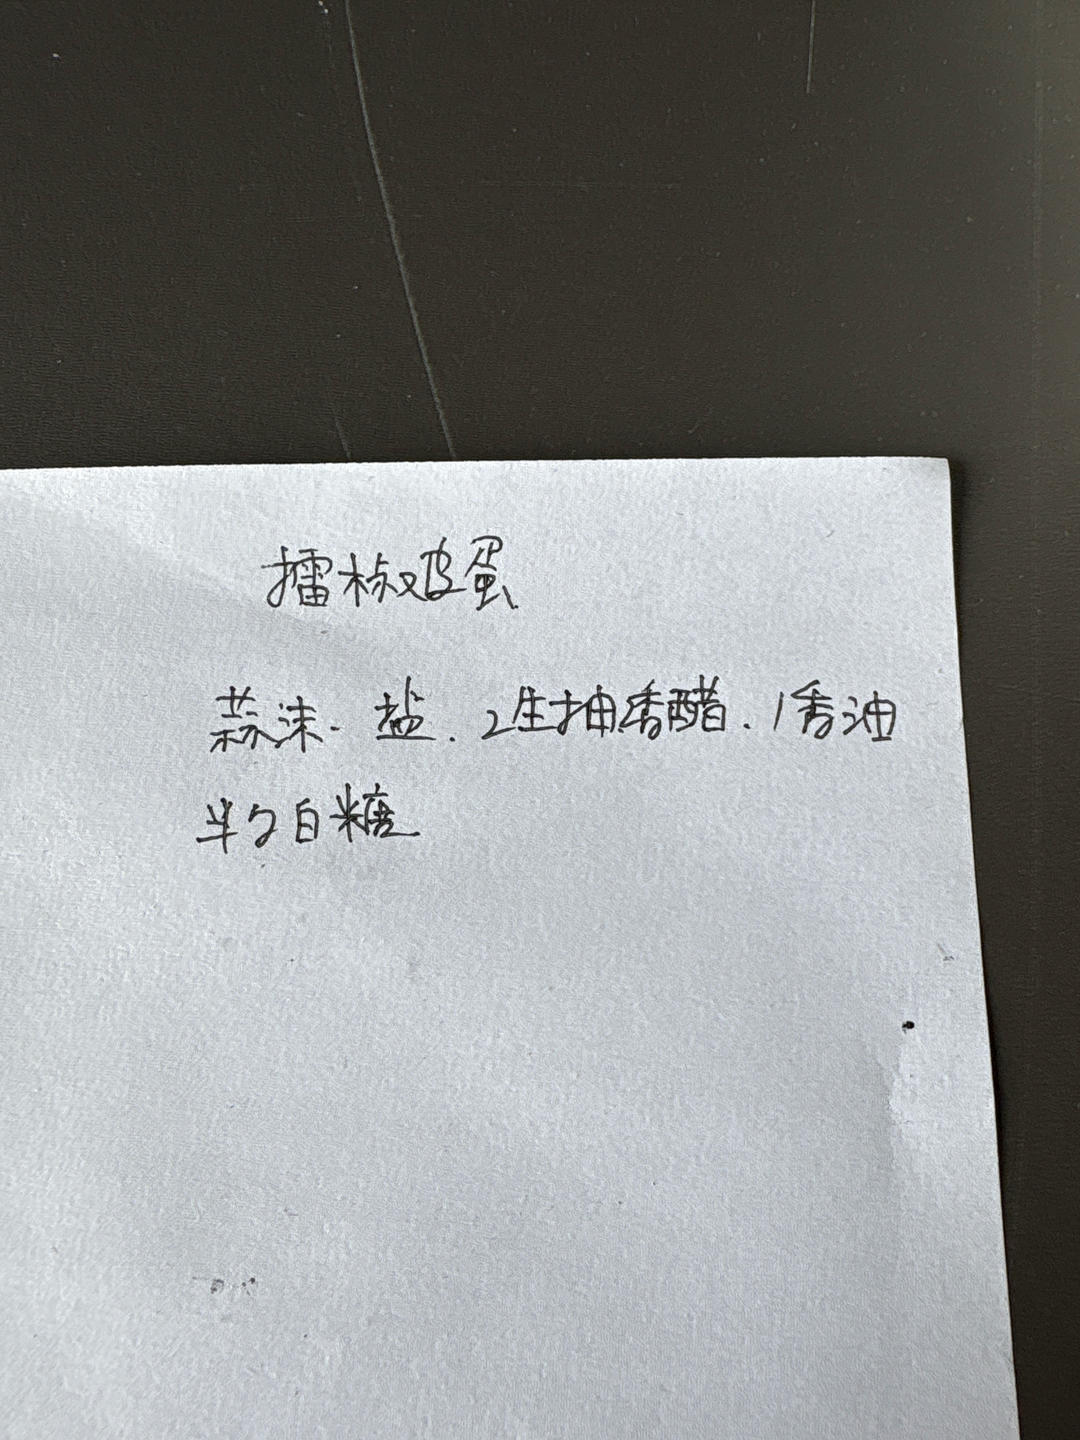 擂椒鸡蛋
蒜沫. 盐. 2生抽香醋. 1香油
半勺白糖